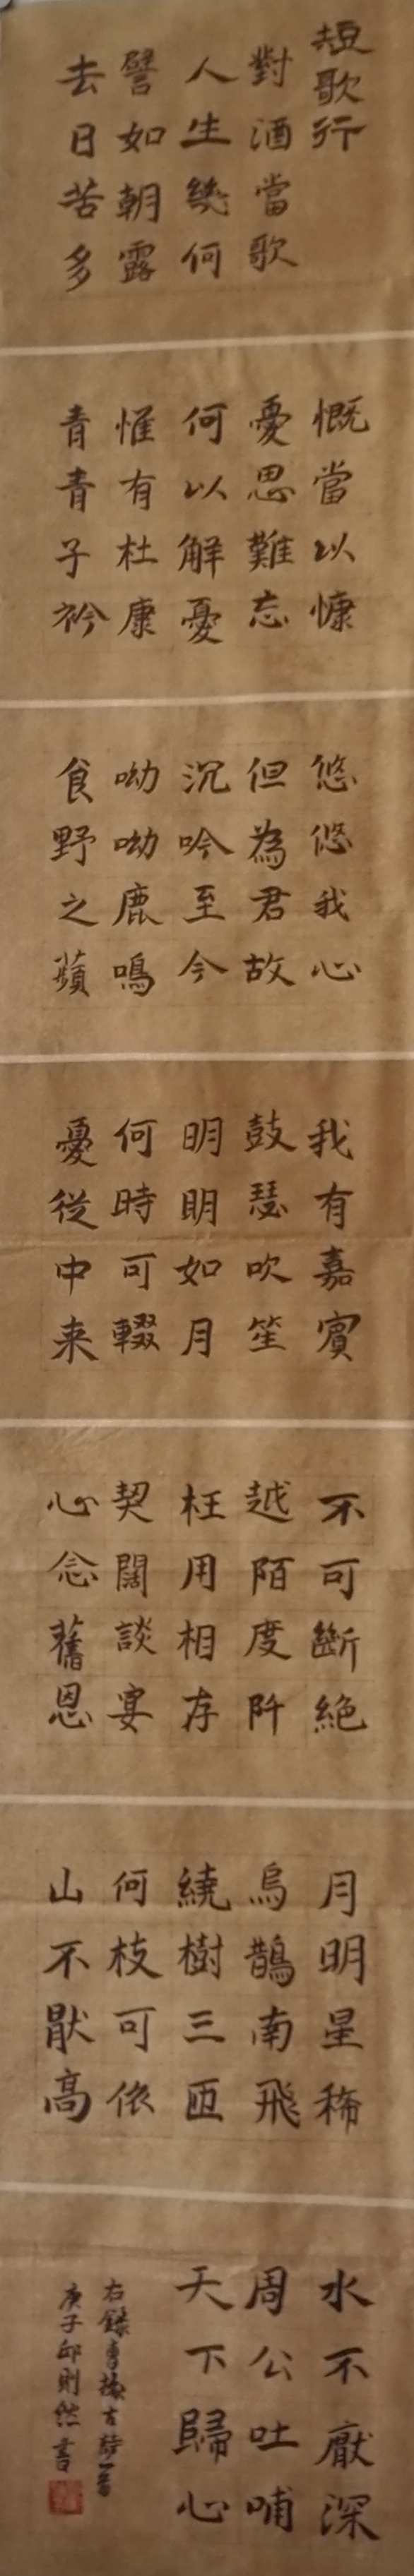 短歌行
對酒當歌
人生幾何
譬如朝露
去日苦多
慨當以慷
憂思難忘
何以解憂
惟有杜康
青青子衿
悠悠我心
但為君故
沉吟至今
呦呦鹿鳴
食野之蘋
我有嘉賓
鼓瑟吹笙
明明如月
何時可輟
憂從中来
不可斷絕
越陌度阡
枉用相存
契闊談宴
心念舊恩
月明星稀
烏鵲南飛
繞樹三匝
何枝可依
山不猒高
水不厭深
周公吐哺
天下歸心
右錄曹操古詩一首
庚子邱則然書